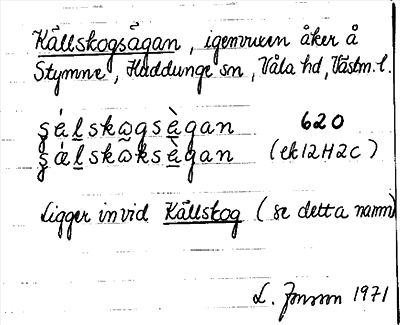 Källskogsågan, igenvuxen åker å
Stymne, Huddunge sn, Våla hd, Västm. l.
620
(ek 12H2c)
Ligger invid Källskog (se detta namn)
L. Jonsson 1971